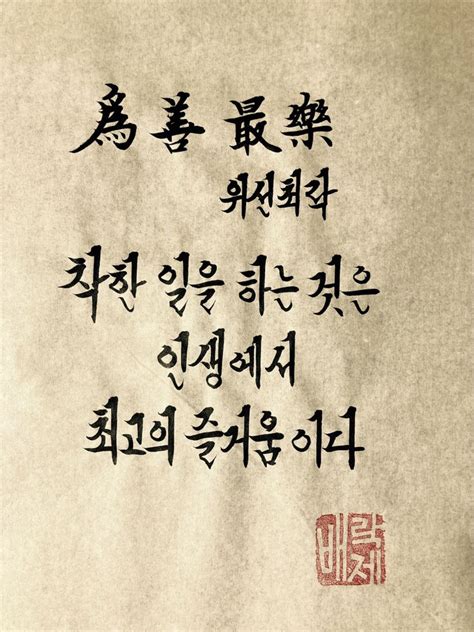 為善 最樂
위선최락
착한 일을 하는 것은
인생에서
최고의 즐거움이다
배락제